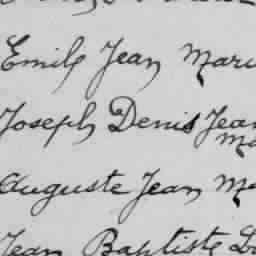 Emile Jean Mari
Joseph Denis Jean
Auguste Jean Ma
Jean Baptiste